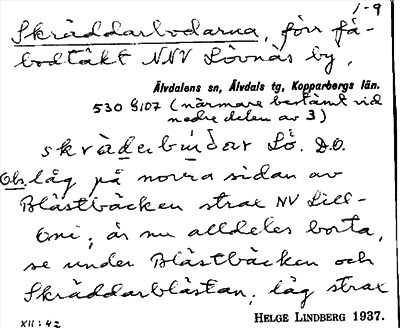 1-9
Skräddarbodarna, förr fä-
bodtäkt NNV Lövnäs by,
Älvdalens sn, Älvdals tg, Kopparbergs län.
530 G107 (närmare bestämt vid
nedre delen av 3)
skrädɐbúdɐr Lö. D.O.
Obs. låg på norra sidan av
Blästbäcken strax NV Lill-
Oni; är nu alldeles borta,
se under Blästbäcken och
Skräddarblästan; låg strax
XII:42
HELGE LINDBERG 1937.